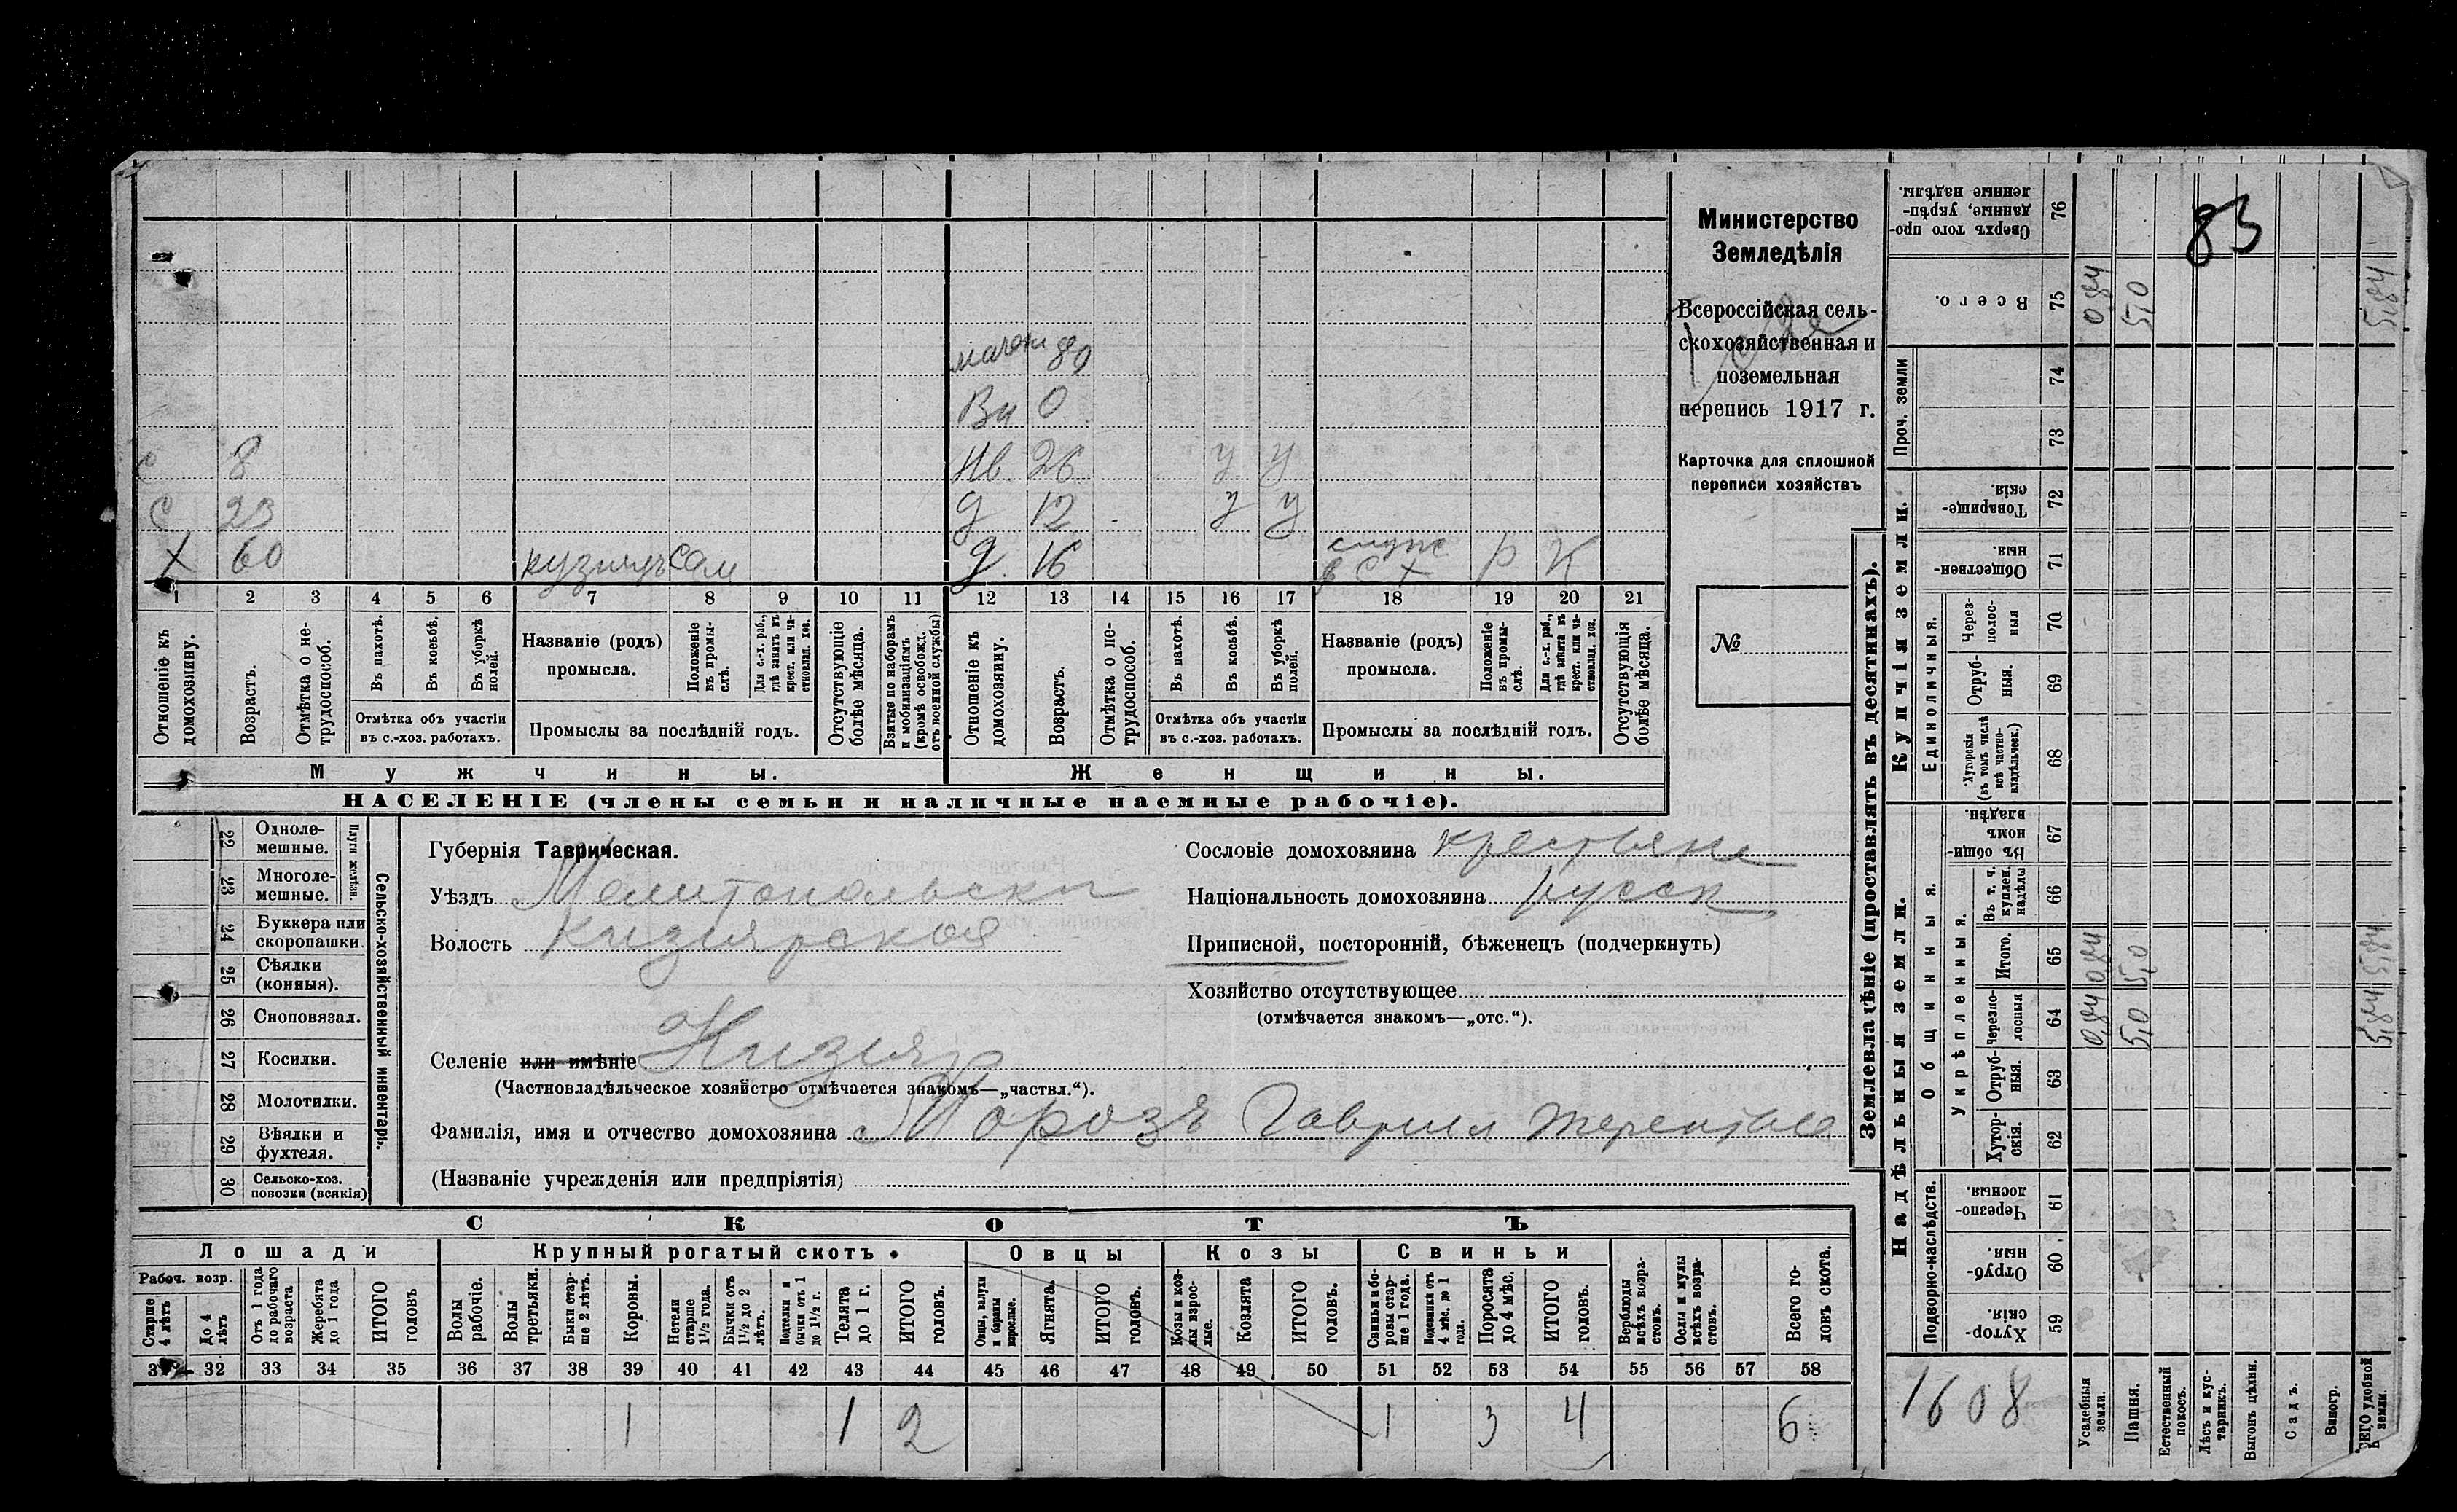 83
Министерство
Земледѣлія
Всероссійская сель-
скохозяйственная и
поземельная
перепись 1917 г.
Карточка для сплошной
переписи хозяйствъ
№
Вн 0
с 8 Нв. 26 у у
С 23 д 12 у у
Х 60 кузнецъ сам д. 16 в с х Р К
1 2 3 4 5 6 7 8 9 10 11 12 13 14 15 16 17 18 19 20 21
Отношеніе къ домохозяину.
Возрастъ.
Отмѣтка о не-трудоспособ.
Въ пахотѣ.
Въ косьбѣ.
Въ уборкѣ полей.
Отмѣтка объ участіи
въ с.-хоз. работахъ.
Названіе (родъ)
промысла.
Положеніе въ промы-слѣ.
Для с.-х. раб., гдѣ занятъ въ крест. или ча-стновлад. хоз.
Промыслы за послѣдній годъ.
Отсутствующіе болѣе мѣсяца.
Взятые по наборамъ и мобилизаціямъ (кромѣ освобожд. отъ военной службы)
Отношеніе къ домохозяину.
Возрастъ.
Отмѣтка о не-трудоспособ.
Въ пахотѣ.
Въ косьбѣ.
Въ уборкѣ полей.
Отмѣтка объ участіи
въ с.-хоз. работахъ.
Названіе (родъ)
промысла.
Положеніе въ промы-слѣ.
Для с.-х. раб., гдѣ занятъ въ крест. или ча-стновлад. хоз.
Промыслы за послѣдній годъ.
Отсутствующія болѣе мѣсяца.
Мужчины. Женщины.
НАСЕЛЕНІЕ (члены семьи и наличные наемные рабочіе).
Сельско-хозяйственный инвентарь.
Плуги желѣзн.
22 Одноле-мешные.
23 Многоле-мешные.
24 Буккера или скоропашки.
25 Сѣялки (конныя).
26 Сноповязал.
27 Косилки.
28 Молотилки.
29 Вѣялки и фухтеля.
30 Сельско-хоз. повозки (всякія)
Губернія Таврическая.
Уѣздъ Мелитопольски
Волость Кизиярская
Сословіе домохозяина крестьяне
Національность домохозяина русск
Приписной, посторонній, бѣженецъ (подчеркнуть)
Хозяйство отсутствующее
(отмѣчается знакомъ—„отс.“).
Селеніе или имѣніе Кизияр
(Частновладѣльческое хозяйство отмѣчается знакомъ—„частвл.“).
Фамилія, имя и отчество домохозяина Морозъ Гаврил Терентьев
(Названіе учрежденія или предпріятія)
СКОТЪ
Лошади Крупный рогатый скотъ. Овцы Козы Свиньи
Рабоч. возр.
Старше 4 лѣтъ
До 4 лѣтъ
Отъ 1 года до рабочаго возраста
Жеребята до 1 года
ИТОГО головъ
Волы рабочіе.
Волы третьяки.
Быки стар-ше 2 лѣтъ.
Коровы.
Нетели старше 1½ года.
Бычки отъ 1½ до 2 лѣтъ.
Подтелки и бычки отъ 1 до 1½ г.
Телята до 1 г.
ИТОГО головъ.
Овцы, валухи и бараны взрослые.
Ягнята.
ИТОГО головъ.
Козы и коз-лы взрос-лые.
Козлята
ИТОГО головъ.
Свиньи и бо-ровы стар-ше 1 года.
Подсвинки отъ 4 мѣс. до 1 года.
Поросята до 4 мѣс.
ИТОГО головъ.
Верблюды всѣхъ возра-стовъ.
Ослы и мулы всѣхъ возра-стовъ.
Всего го-ловъ скота.
31 32 33 34 35 36 37 38 39 40 41 42 43 44 45 46 47 48 49 50 51 52 53 54 55 56 57 58
1 1 2 1 3 4 6
Землевладѣніе (проставлять въ десятинахъ).
Надѣльныя земли. Купчія земли. Проч. земли
Подворно-наслѣдств.
Общинныя
Укрѣпленныя.
Единоличныя.
Сверхъ того про-данные, укрѣп-ленные надѣлы. 76
Всего. 75 0,84 5,0 5,84
74
73
Товарище-скія. 72
Обществен-ныя. 71
Через-полос-ныя 70
Отруб-ныя. 69
Хуторскія (въ томъ числѣ всѣ частно-владѣльческ.) 68
Въ общин-номъ владѣн. 67
Въ т. ч. куплен. надѣлы 66
Итого. 65 0,84 5,0 5,84
Черезпо-лосныя 64 0,84 5,0 5,84
Отруб-ныя. 63
Хутор-скія. 62
Черезпо-лосныя. 61
Отруб-ныя. 60
Хутор-скія. 59
1608
Усадебныя земли.
Пашня.
Естественный покосъ.
Лѣсъ и кус-тарникъ.
Выгонъ цѣлин.
Садъ.
Виногр.
ВСЕГО удобной земли.